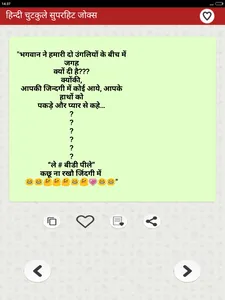 14:37
हिन्दी चुटकुले सुपरहिट जोक्स
"भगवान ने हमारी दो उंगलियों के बीच में
जगह
क्यों दी है???
क्योंकी,
आपकी जिन्दगी में कोई आये, आपके
हाथों को
पकड़े और प्यार से कहे...
?
?
?
?
?
?
"ले # बीडी पीले"
कछू ना रखो जिंदगी में
😄😄🤔🤔🤔💗😄😄"